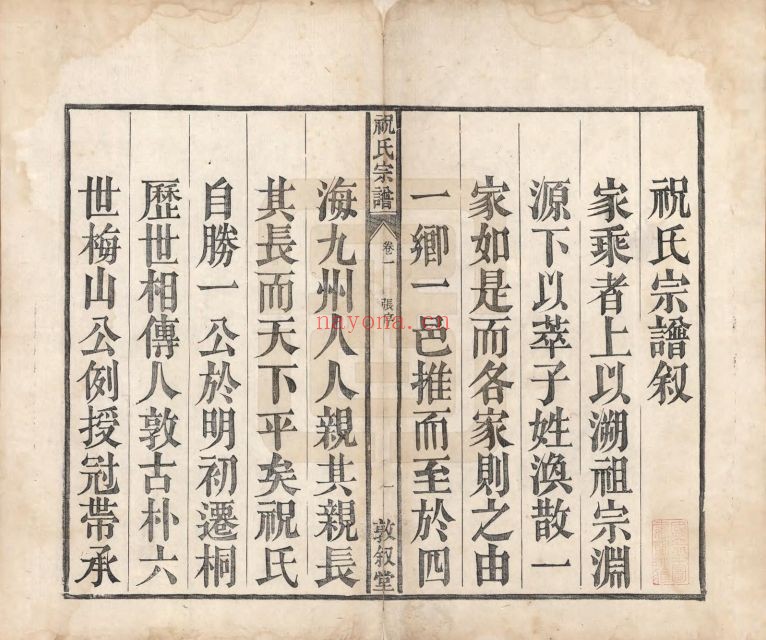 祝氏宗譜叙
家乘者上以溯祖宗淵
源下以萃子姓渙散一
家如是而各家則之由
一鄉一邑推而至於四
祝氏宗譜
卷一
張序
一
敦叙堂
海九州人人親其親長
其長而天下平矣祝氏
自勝一公於明初遷桐
歷世相傳人敦古朴六
世梅山公例授冠帶承
nayona.cn